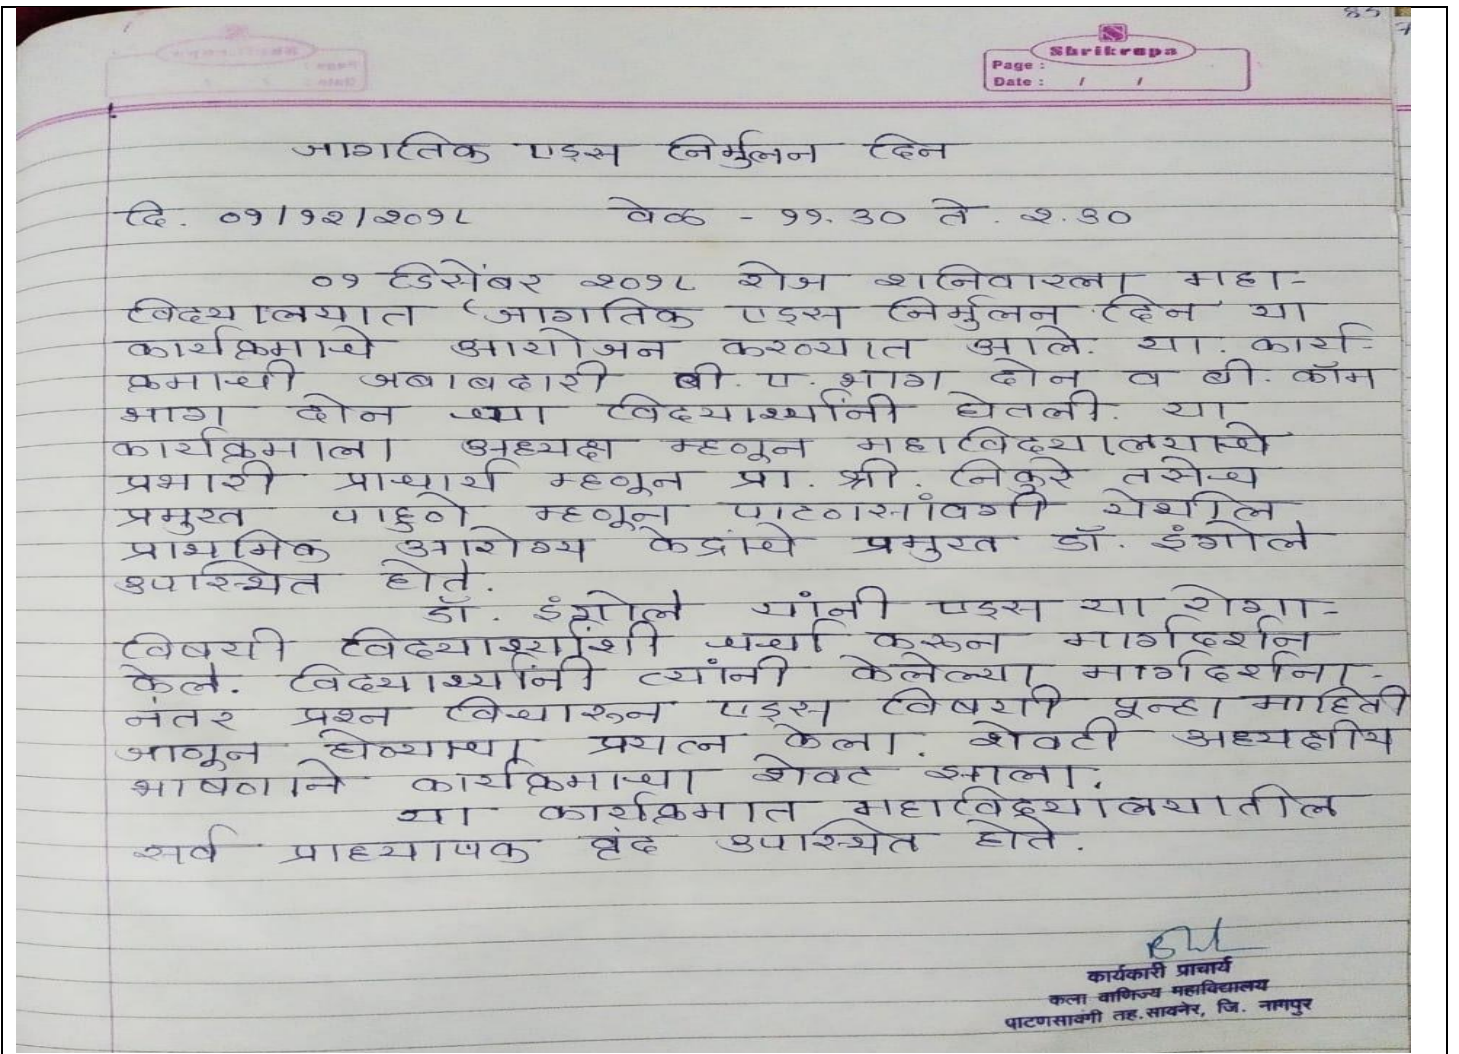 85
Shrikrupa
Page :
Date : / /
जागतिक एड्स निर्मुलन दिन
दि. ०१/१२/२०१८ वेळ - ११.३० ते. २.३०
०१ डिसेंबर २०१८ रोज शनिवारला महा-
विद्यालयात 'जागतिक एड्स निर्मुलन दिन' या
कार्यक्रमाचे आयोजन करण्यात आले. या. कार्य-
क्रमाची जबाबदारी बी. ए. भाग दोन व बी. कॉम
भाग दोन च्या विद्यार्थ्यांनी घेतली. या
कार्यक्रमाला अध्यक्ष म्हणून महाविद्यालयाचे
प्रभारी प्राचार्य म्हणून प्रा. श्री. निकुरे तसेच
प्रमुख पाहुणे म्हणून पाटणसांवगी येथील
प्राथमिक आरोग्य केंद्राचे प्रमुख डॉ. इंगोले
उपस्थित होते.
डॉ. इंगोले यांनी एड्स या रोगा-
विषयी विद्यार्थ्यांशी चर्चा करून मार्गदर्शन
केले. विद्यार्थ्यांनी त्यांनी केलेल्या मार्गदर्शना-
नंतर प्रश्न विचारून एड्स विषयी पून्हा माहिती
जाणून घेण्याचा प्रयत्न केला. शेवटी अध्यक्षीय
भाषणाने कार्यक्रमाचा शेवट झाला.
या कार्यक्रमात महाविद्यालयातील
सर्व प्राध्यापक वृंद उपस्थित होते.
कार्यकारी प्राचार्य
कला वाणिज्य महाविद्यालय
पाटणसावंगी तह.सावनेर, जि. नागपुर